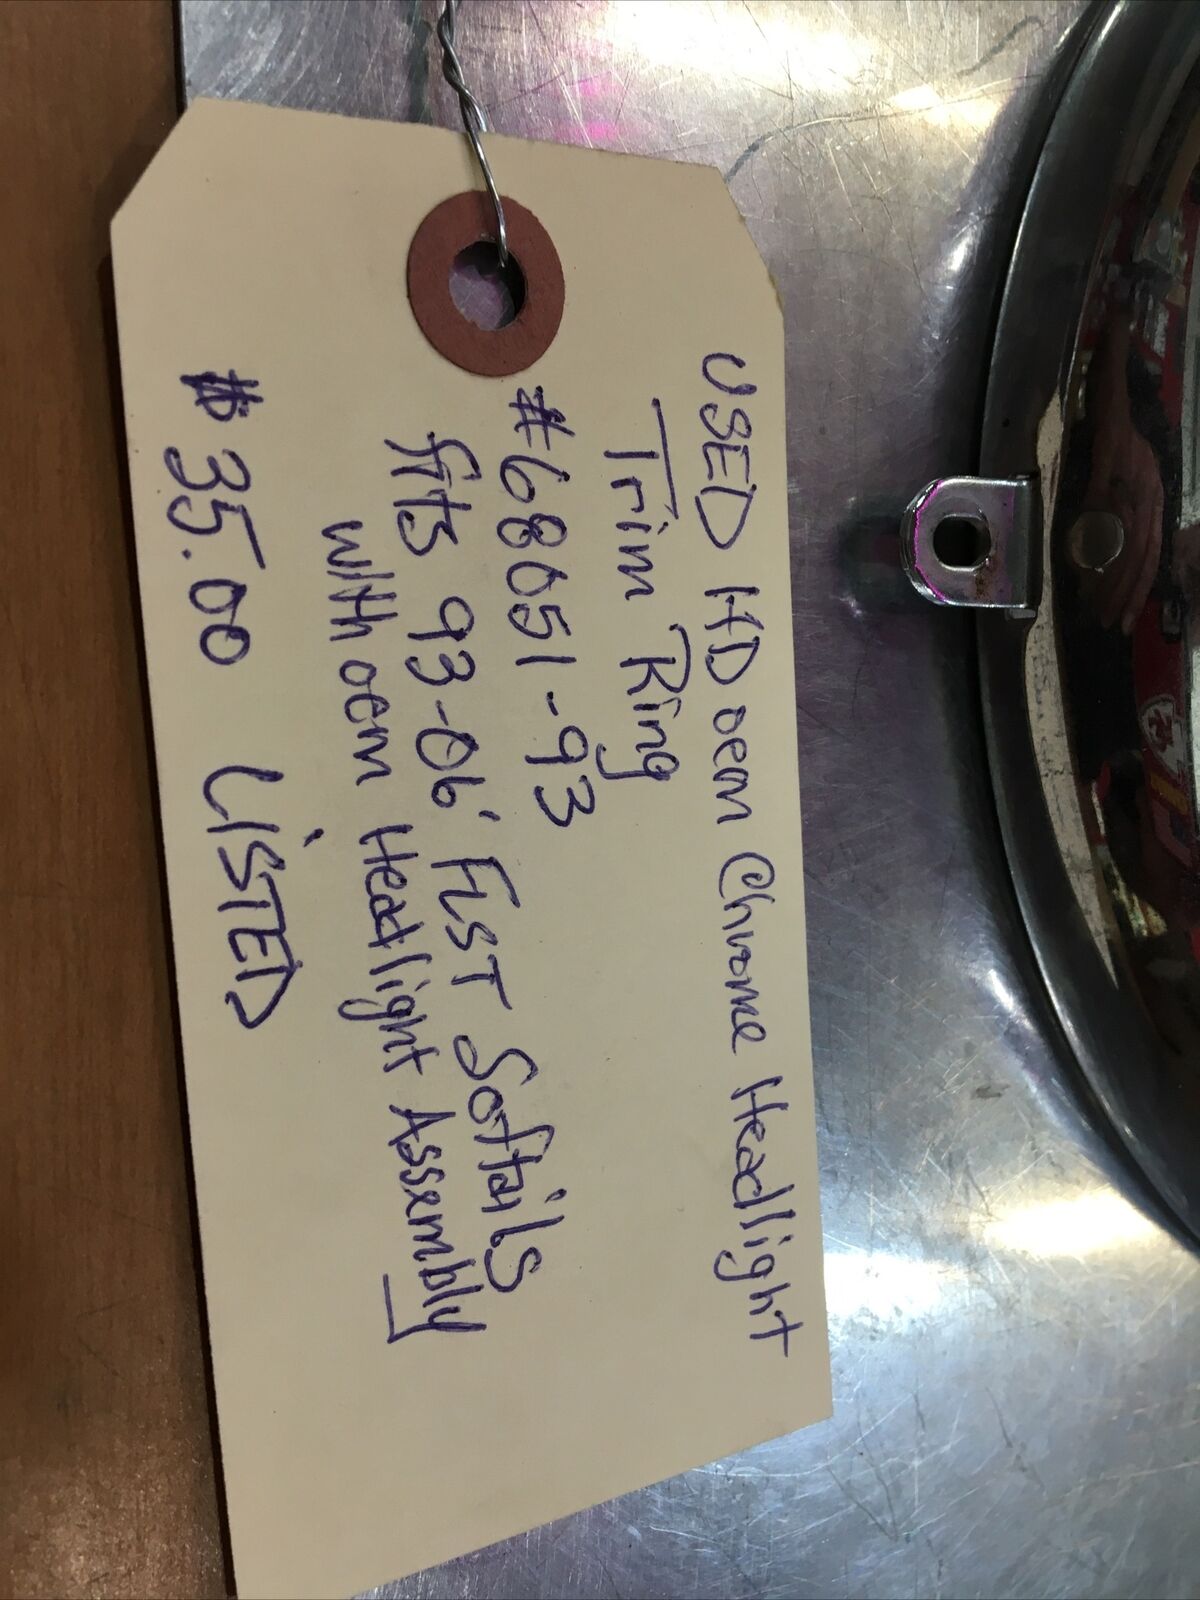 USED HD oem Chrome Headlight
Trim Ring
#68051-93
fits 93-06' FLST Softails
with oem Headlight Assembly
$35.00 LISTED